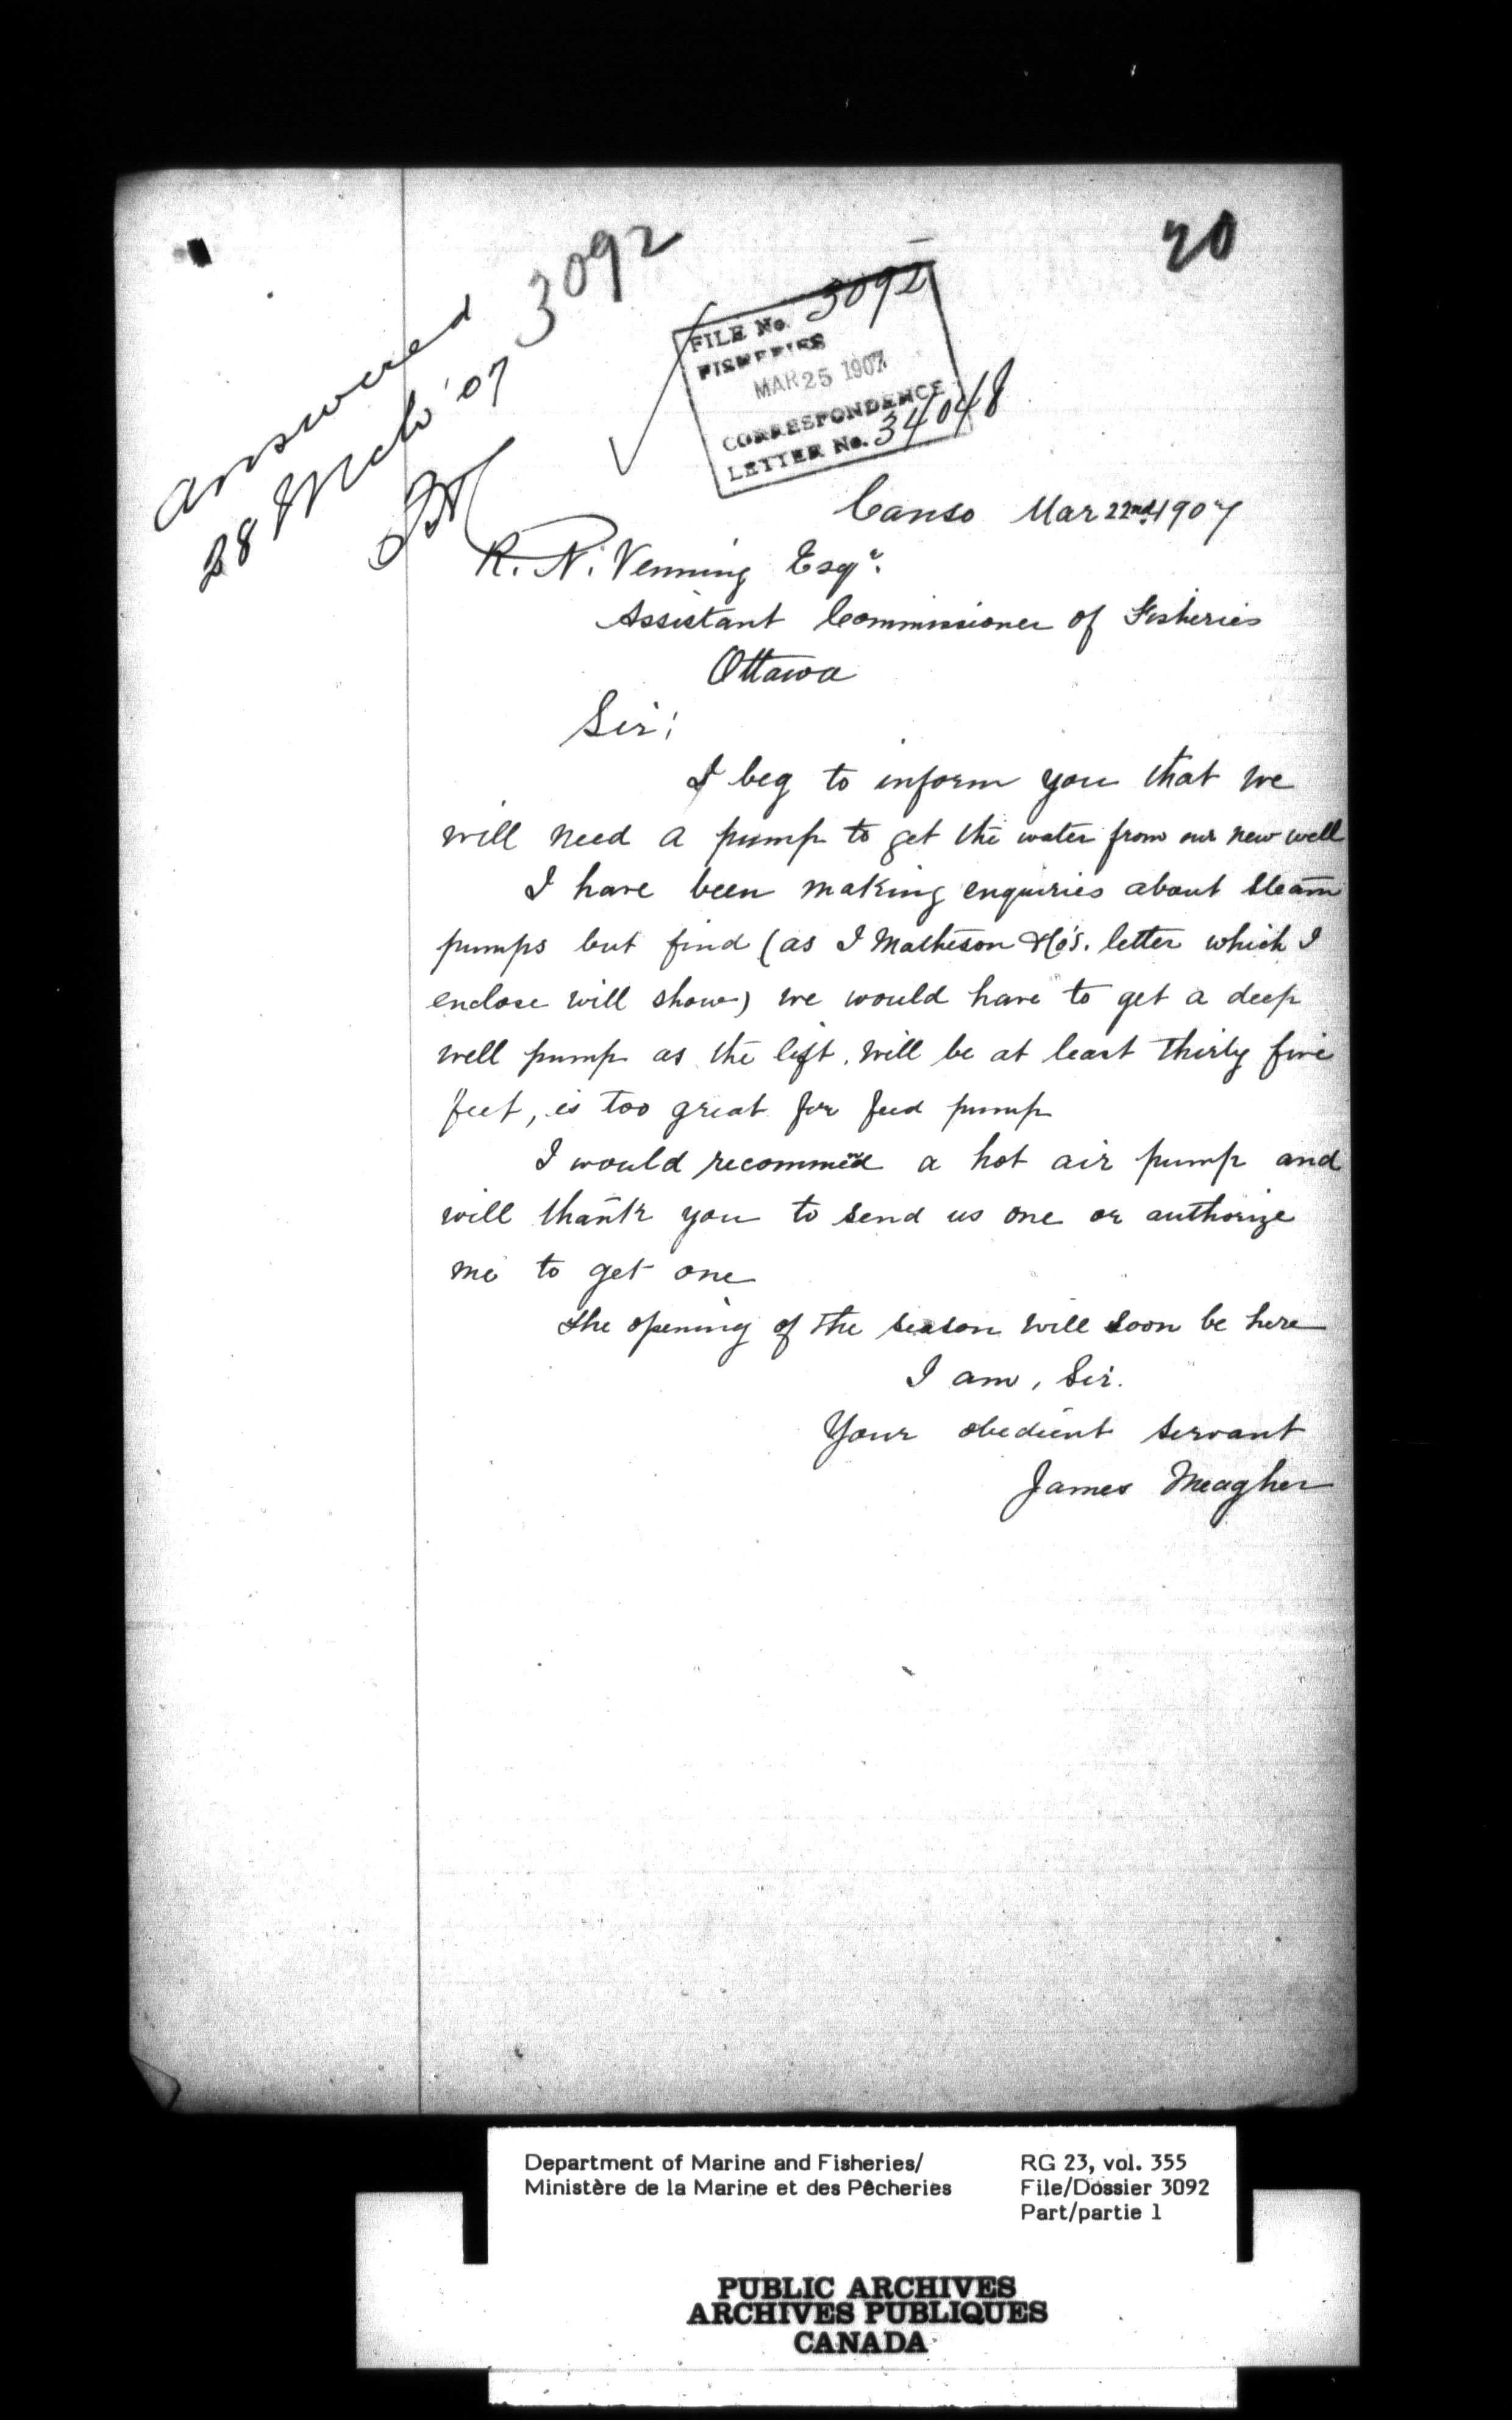 20
3092
answered
28 Mch '07
FILE No. 3092
FISHERIES
MAR 25 1907
CORRESPONDENCE
LETTER No. 34048
Canso Mar 22nd 1907
R. N. Venning Esqr.
Assistant Commissioner of Fisheries
Ottawa
Sir;
I beg to inform you that we
will need a pump to get the water from our new well
I have been making enquiries about steam
pumps but find (as I Matheson & Co's. letter which I
enclose will show) we would have to get a deep
well pump as the lift will be at least thirty five
feet, is too great for feed pump
I would recommed a hot air pump and
will thank you to send us one or authorize
me to get one
the opening of the season will soon be here
I am, Sir.
Your obedient servant
James Meagher
Department of Marine and Fisheries/
Ministère de la Marine et des Pêcheries
RG 23, vol. 355
File/Dossier 3092
Part/partie 1
PUBLIC ARCHIVES
ARCHIVES PUBLIQUES
CANADA